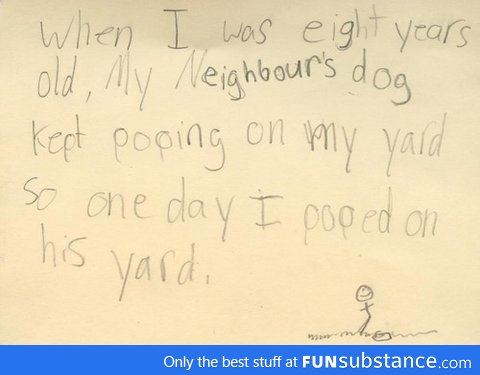 When I was eight years
old, My Neighbour's dog
kept pooping on my yard
So one day I pooped on
his yard.
Only the best stuff at FUNsubstance.com